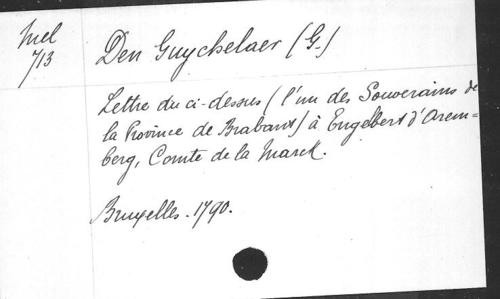 Mel
713
Den Guychelaer (G.)
Lettre du ci-dessus (l'un des Souverains de
la Province de Brabant) à Engelbert d'Arem=
berg, Comte de la Marck.
Bruxelles. 1790.